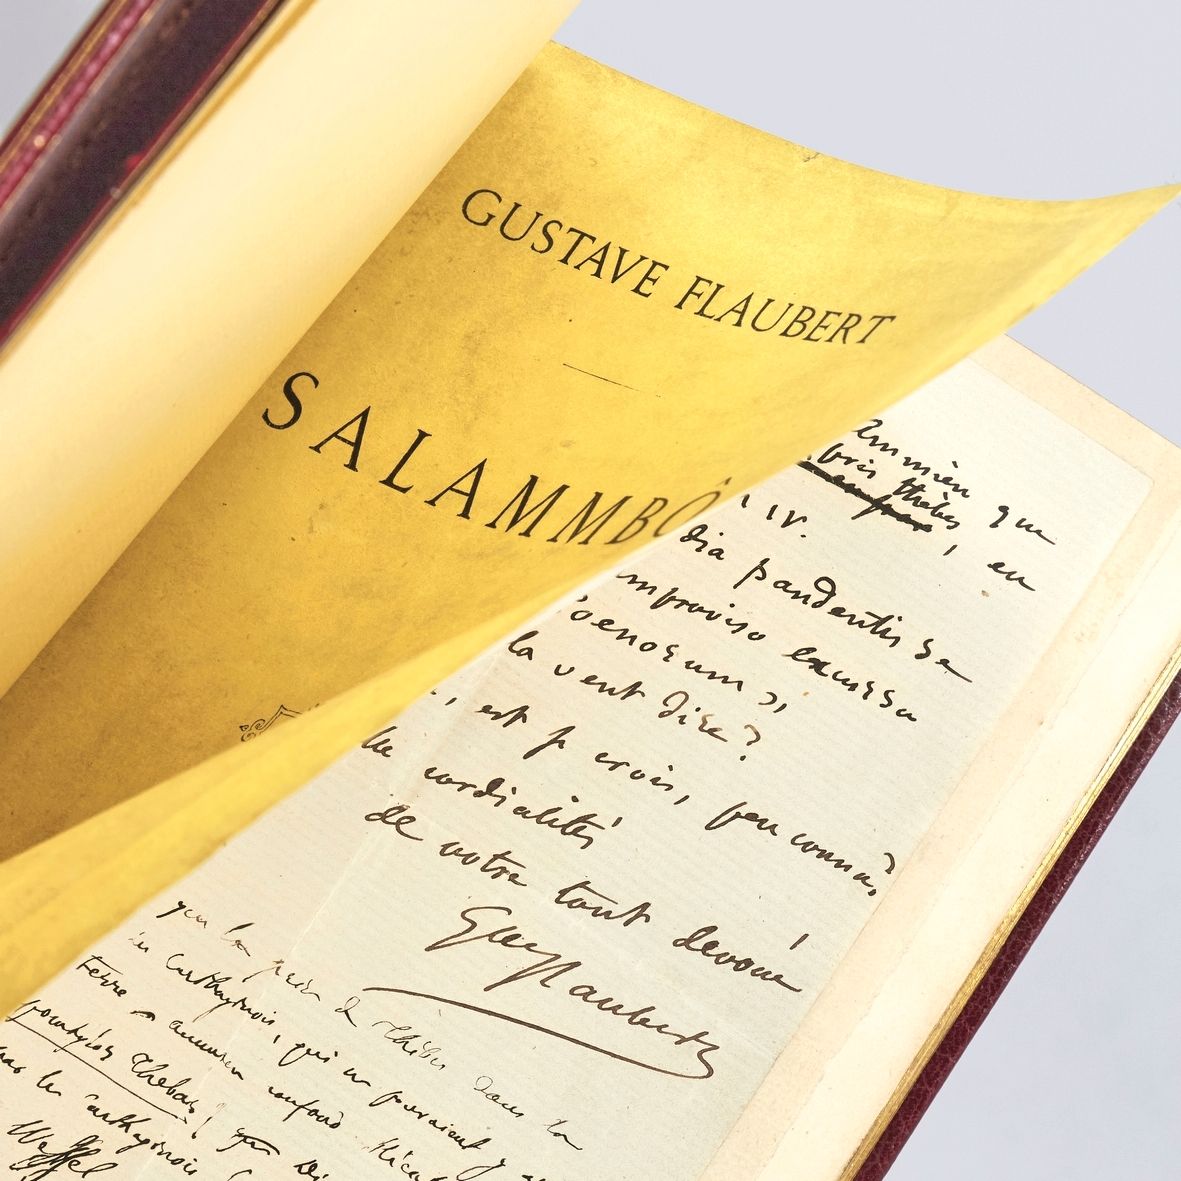 GUSTAVE FLAUBERT
SALAMMBÔ
Ammien que
pris Thèbes
, en
IV.
dia pandentis se
improviso excursu
Poenorum »,
la veut dire ?
, est je crois, peu connu,
cordialités
de votre tout dévoué
Gve Flaubert
que la prise de Thèbes dans la
les Carthaginois, qui ne pouvaient y
terre - Ammien confond Hécat
Thebas !
pas les Carthaginois